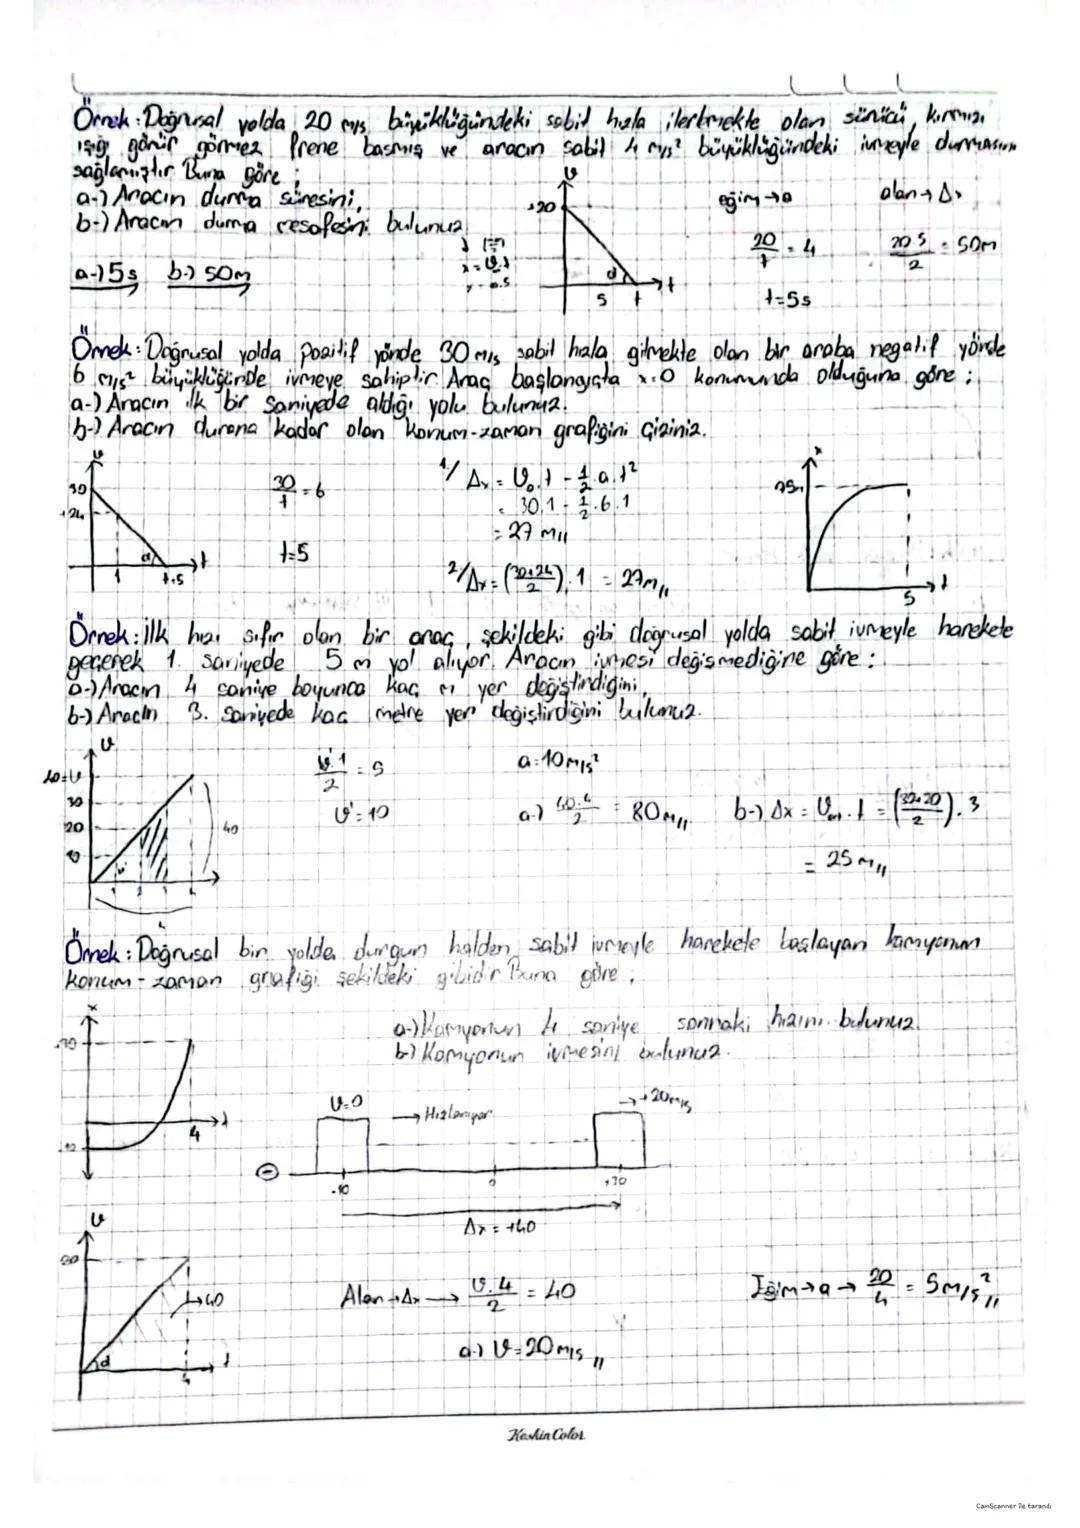 Örnek: Doğrusal yolda 20 m/s büyüklüğündeki sabit hızla ilerlemekte olan sürücü, kırmızı
ışığı görür görmez frene basmış ve aracın sabit 4 m/s² büyüklüğündeki ivmeyle durmasını
sağlamıştır. Buna göre ;
a-) Aracın durma süresini,
b-) Aracın durma mesafesini bulunuz.
a-) 5s b-) 50m
υ
+20
α
5 t
t
eğim → a
20/t = 4
t=5s
alan → Δx
20.5/2 = 50m
Örnek: Doğrusal yolda pozitif yönde 30 m/s sabit hızla gitmekte olan bir araba negatif yönde
6 m/s² büyüklüğünde ivmeye sahiptir. Araç başlangıçta x=0 konumunda olduğuna göre ;
a-) Aracın ilk bir saniyede aldığı yolu bulunuz.
b-) Aracın durana kadar olan konum-zaman grafiğini çiziniz.
υ
30
+24
α
1 t=5
t
30/t = 6
t=5
1/ Δx = υ₀.t - 1/2.a.t²
= 30.1 - 1/2.6.1
= 27 m//
2/ Δx = (30+24/2).1 = 27m//
x
75
5
t
Örnek: İlk hızı sıfır olan bir araç, şekildeki gibi doğrusal yolda sabit ivmeyle harekete
geçerek 1. saniyede 5 m yol alıyor. Aracın ivmesi değişmediğine göre :
a-) Aracın 4 saniye boyunca kaç m yer değiştirdiğini,
b-) Aracın 3. saniyede kaç metre yer değiştirdiğini bulunuz.
υ
40=υ
30
20
40
υ.1/2 = 5
υ = 10
a=10m/s²
a-) 40.4/2 = 80m//
b-) Δx = υort.t = (30+20/2).3
= 25 m//
Örnek: Doğrusal bir yolda durgun halden sabit ivmeyle harekete başlayan kamyonun
konum - zaman grafiği şekildeki gibidir. Buna göre ;
a-) Kamyonun 4 saniye sonraki hızını bulunuz.
b-) Kamyonun ivmesini bulunuz.
x
4
t
υ=0
→ Hızlanıyor
→ +20m/s
-10 0 +30
Δx = +40
υ
20
→ 40
α
4
t
Alan → Δx → υ.4/2 = 40
a-) υ=20m/s //
Eğim → a → 20/4 = 5m/s² //
Keskin Color
CamScanner ile tarandı